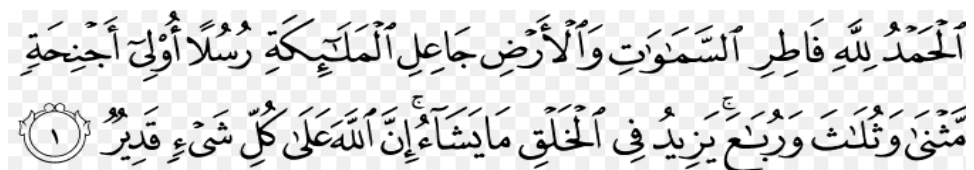 ٱلْحَمْدُ لِلَّهِ فَاطِرِ ٱلسَّمَٰوَٰتِ وَٱلْأَرْضِ جَاعِلِ ٱلْمَلَٰٓئِكَةِ رُسُلًا أُو۟لِىٓ أَجْنِحَةٍ
مَّثْنَىٰ وَثُلَٰثَ وَرُبَٰعَ ۚ يَزِيدُ فِى ٱلْخَلْقِ مَا يَشَآءُ ۚ إِنَّ ٱللَّهَ عَلَىٰ كُلِّ شَىْءٍ قَدِيرٌ ١